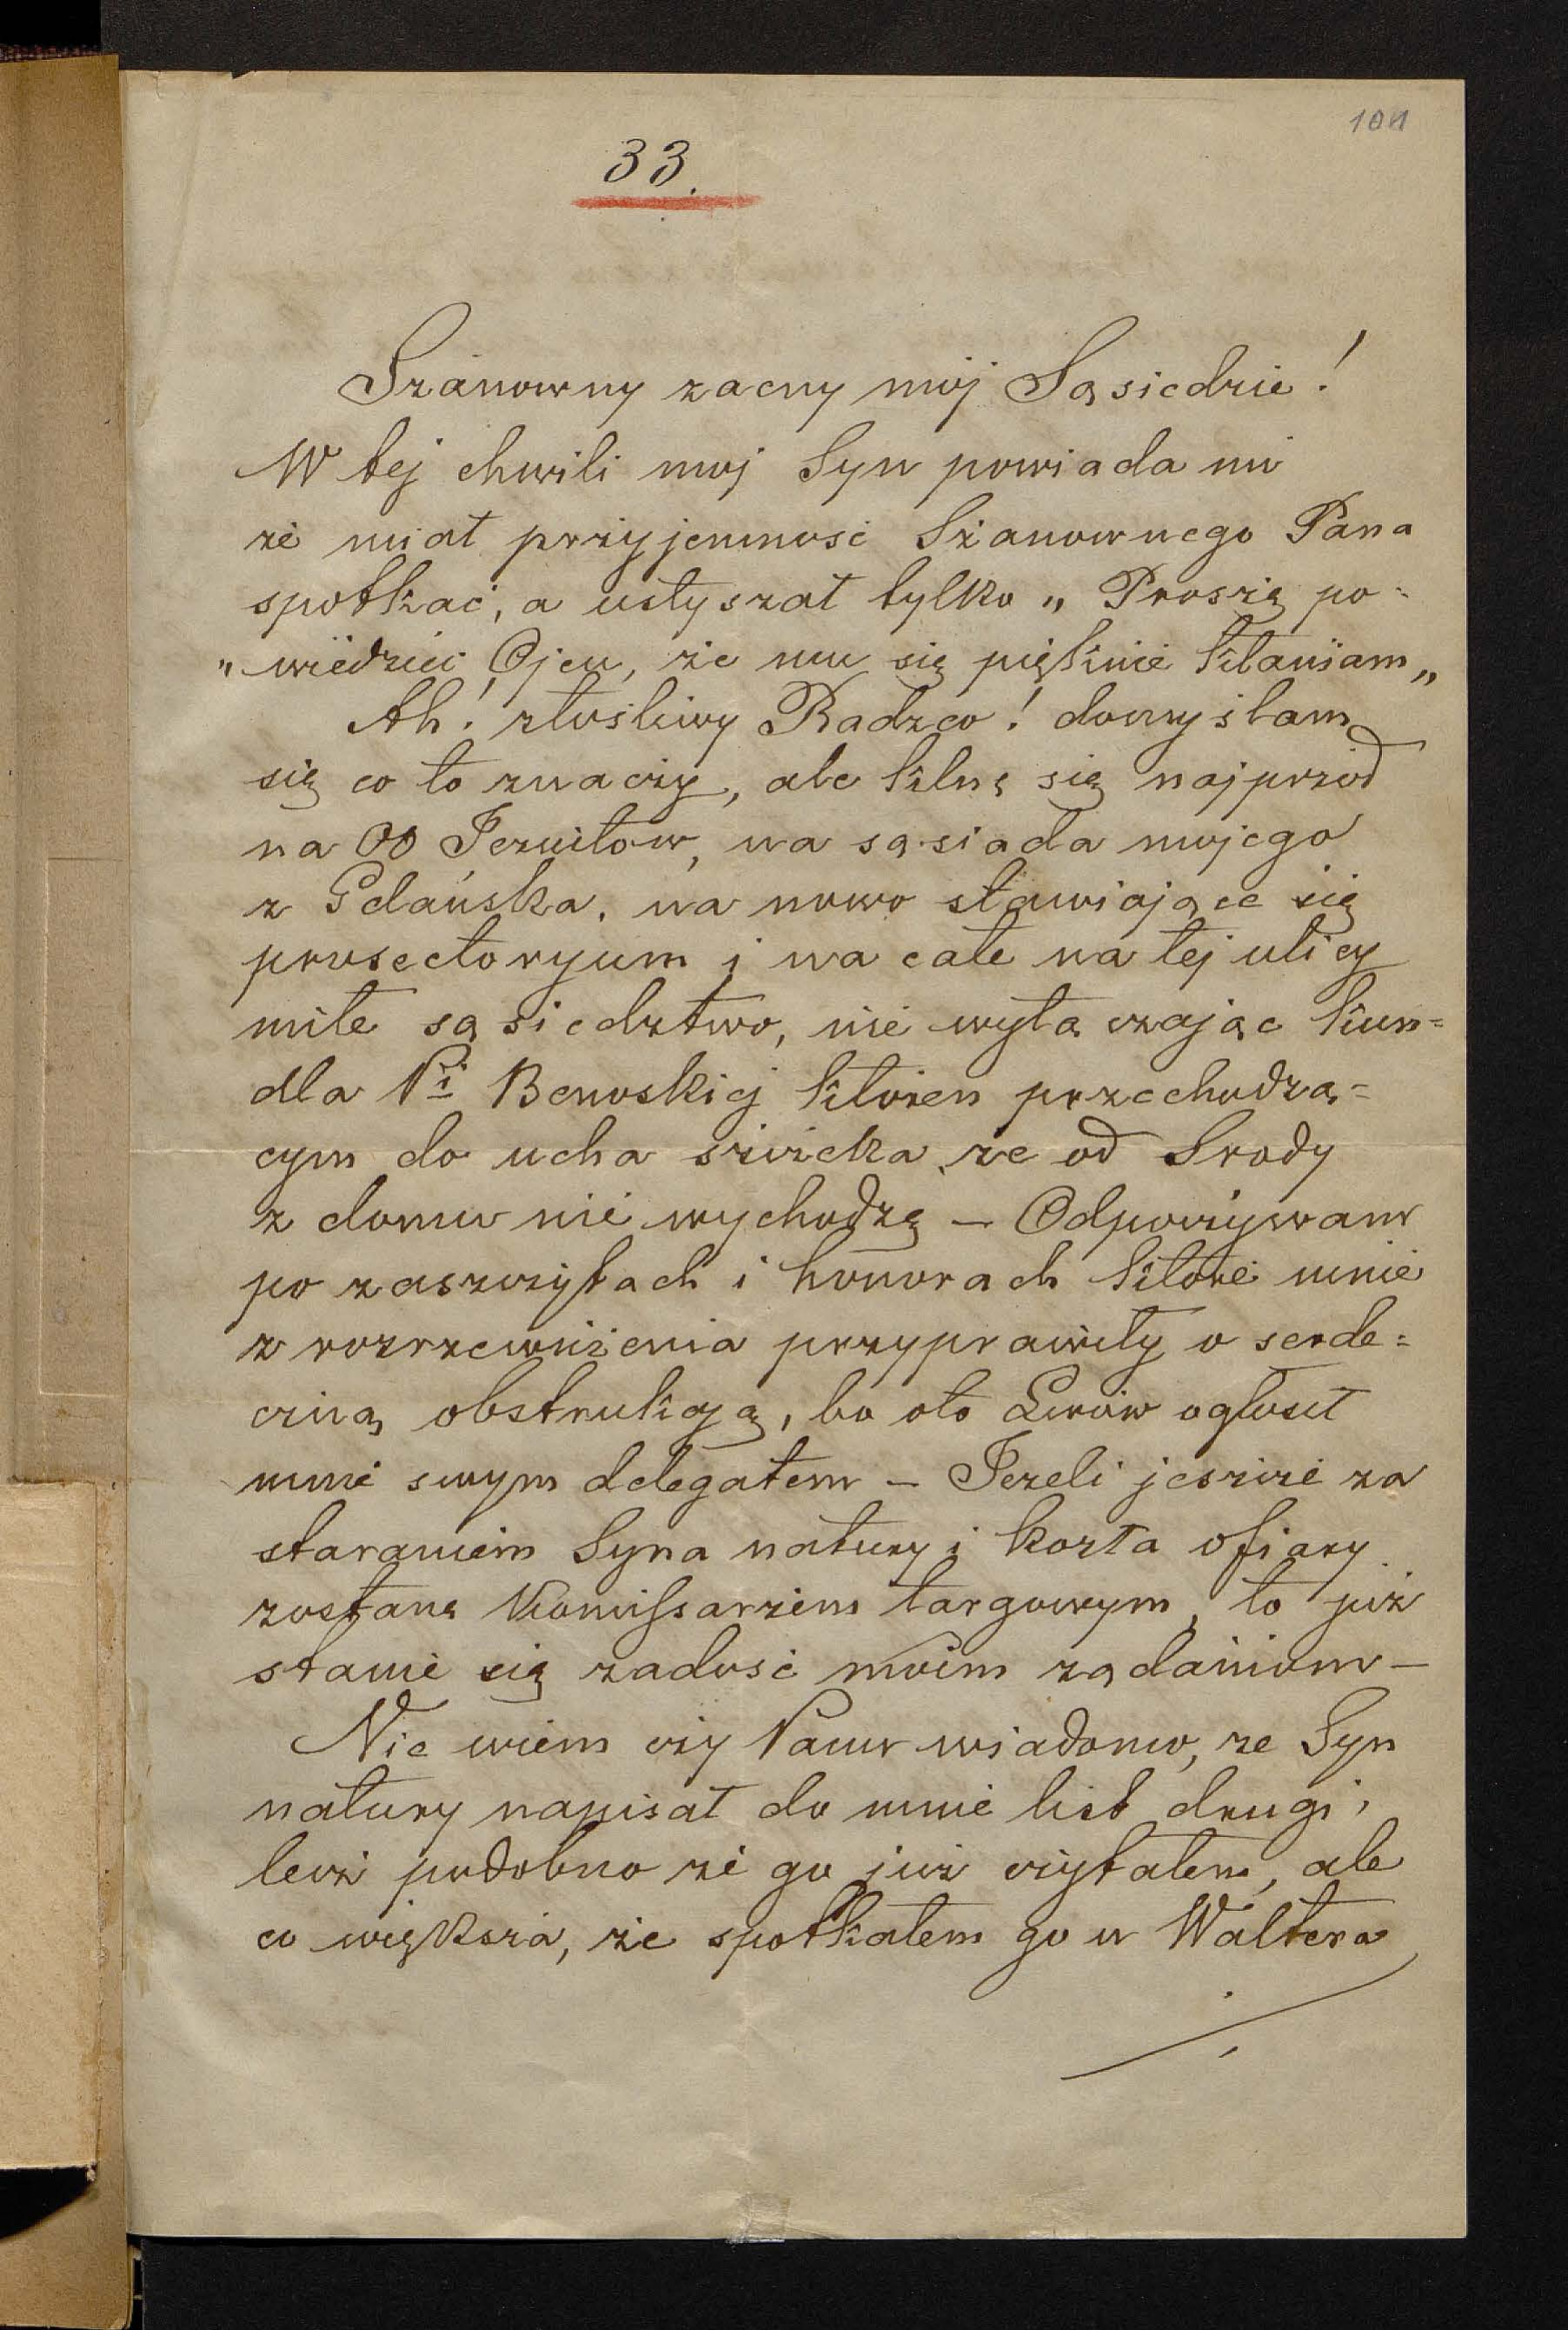 104
33.
Szanowny zacny mój Sąsiedzie!
W tej chwili moj Syn powiada mi
że miał przyjemność Szanownego Pana
spotkać, a usłyszał tylko „Proszę po-
„wiedzieć Ojcu, że mu się pięknie kłaniam„
Ah! złośliwy Radzco! domyślam
się co to znaczy, ale klnę się najprzód
na OO Jezuitow, na sąsiada mojego
z Gdańska, na nowo stawiające się
prosectoryum i na całe na tej ulicy
miłe sąsiedztwo, nie wyłączając kun=
dla Pi Benoskiej któren przechodzą=
cym do ucha szczeka, że od Srody
z domu nie wychodzę – Odpoczywam
po zaszczytach i honorach które mnie
z rozrzewnienia przyprawiły o serde=
czną obstrukcyą, bo oto Lwów ogłosił
mnie swym delegatem – Jezeli jeszcze za
staraniem Syna natury i kozła ofiary
zostanę Komissarzem targowym, to już
stanie się zadość moim rządaniom –
Nie wiem czy Panu wiadomo, ze Syn
natury napisał do mnie list drugi,
lecz podobno że go już czytałem, ale
co większa, że spotkałem go u Waltera